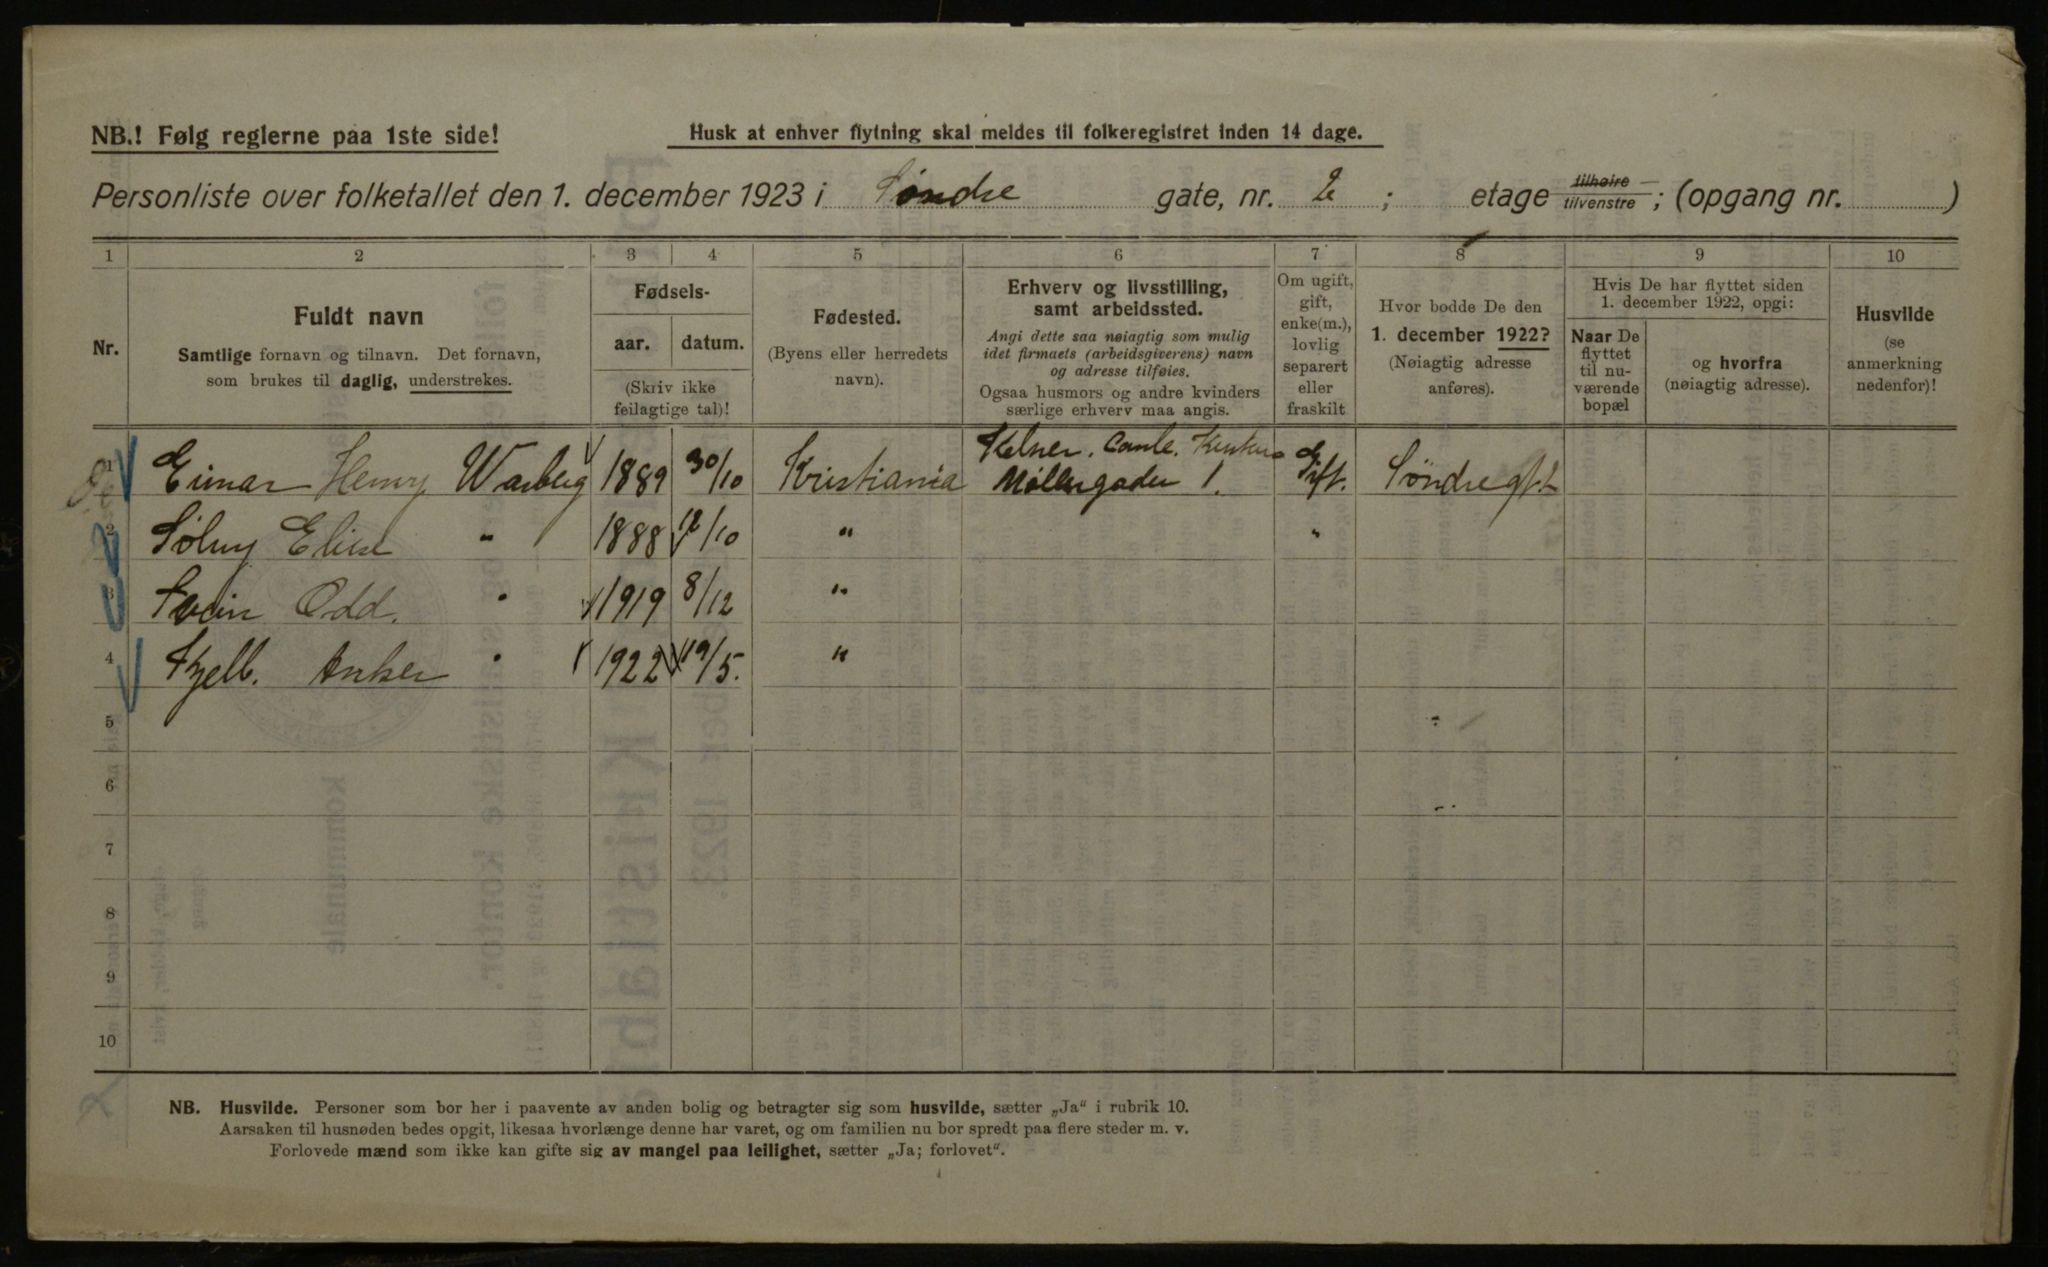 NB.! Følg reglerne paa 1ste side!
Husk at enhver flytning skal meldes til folkeregistret inden 14 dage.
Personliste over folketallet den 1. december 1923 i Søndre gate, nr. 2 ; etage tilhøire — tilvenstre ; (opgang nr. )
1 2 3 4 5 6 7 8 9 10
Nr.
Fuldt navn
Samtlige fornavn og tilnavn. Det fornavn,
som brukes til daglig, understrekes.
Fødsels-
aar. datum.
(Skriv ikke
feilagtige tal)!
Fødested.
(Byens eller herredets
navn).
Erhverv og livsstilling,
samt arbeidssted.
Angi dette saa nøiagtig som mulig
idet firmaets (arbeidsgiverens) navn
og adresse tilføies.
Ogsaa husmors og andre kvinders
særlige erhverv maa angis.
Om ugift,
gift,
enke(m.),
lovlig
separert
eller
fraskilt
Hvor bodde De den
1. december 1922?
(Nøiagtig adresse
anføres).
Hvis De har flyttet siden
1. december 1922, opgi:
Naar De
flyttet
til nu-
værende
bopæl
og hvorfra
(nøiagtig adresse).
Husvilde
(se
anmerkning
nedenfor)!
1 Einar Henry Warberg 1889 30/10 Kristiania Kelner. Møllergaden 1. Gift. Søndregt 2
2 Solvey Elise " 1888 12/10 " "
3 Svein Odd. " 1919 8/12 "
4 Kjell. Anker " 1922 19/5. "
5
6
7
8
9
10
NB. Husvilde. Personer som bor her i paavente av anden bolig og betragter sig som husvilde, sætter „Ja“ i rubrik 10.
Aarsaken til husnøden bedes opgit, likesaa hvorlænge denne har varet, og om familien nu bor spredt paa flere steder m. v.
Forlovede mænd som ikke kan gifte sig av mangel paa leilighet, sætter „Ja; forlovet“.